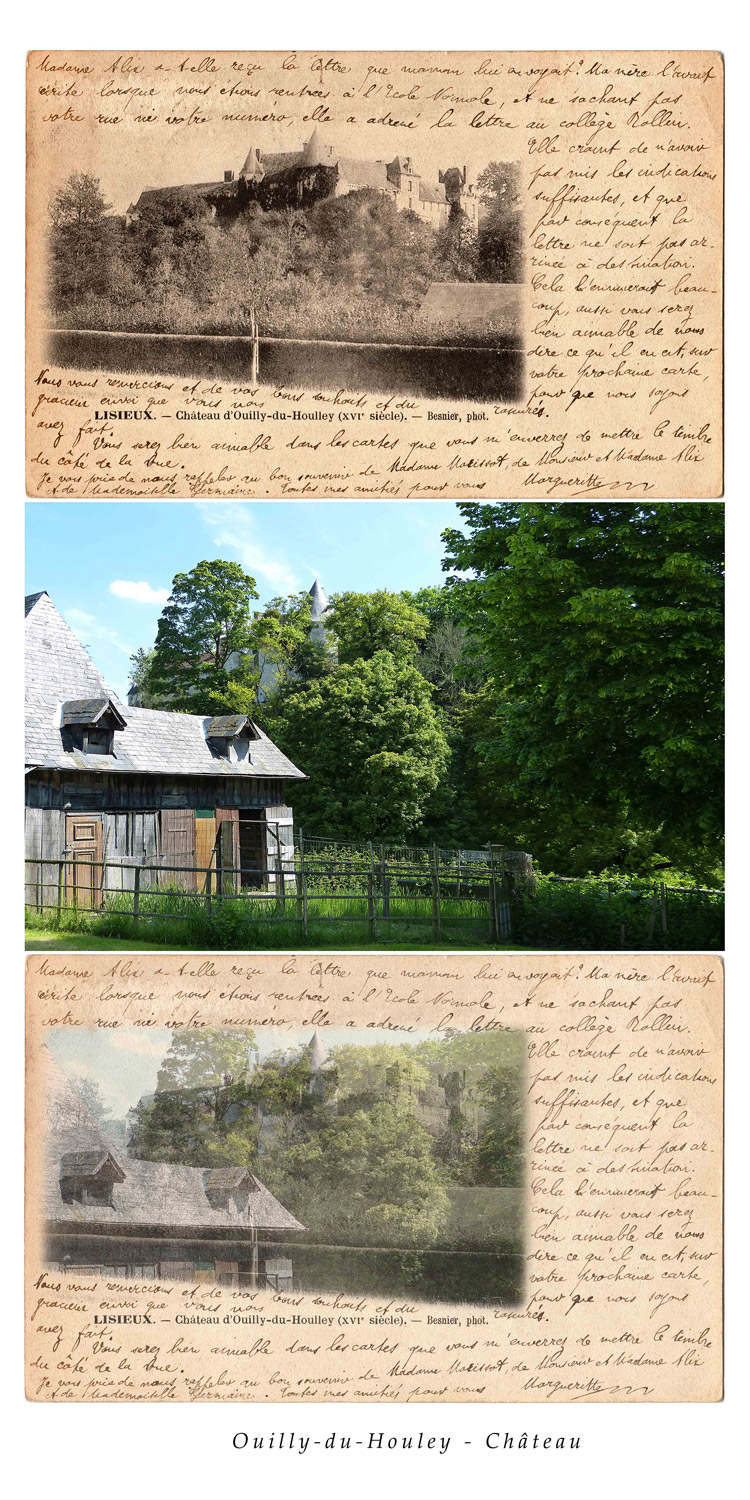 Madame Alix a-t-elle reçu la lettre que maman lui envoyait? Ma mère l'avait
écrite lorsque nous étions rentrées à l'Ecole Normale, et ne sachant pas
votre rue ni votre numéro, elle a adressé la lettre au collège Rollin.
Elle craint de n'avoir
pas mis les indications
suffisantes, et que
par conséquent la
lettre ne soit pas ar-
rivée à destination.
Cela l'ennuierait beau-
coup, aussi vous serez
bien aimable de nous
dire ce qu'il en est, sur
votre prochaine carte,
pour que nous soyons
rassurés.
Nous vous remercions et de vos bons souhaits et du
gracieux envoi que vous nous
avez fait.
LISIEUX. — Château d'Ouilly-du-Houlley (XVIe siècle). — Besnier, phot.
Vous serez bien aimable dans les cartes que vous m'enverrez de mettre le timbre
du côté de la vue.
Je vous prie de nous rappeler au bon souvenir de Madame Morissot, de Monsieur et Madame Alix
et de Mademoiselle Germaine. Toutes mes amitiés pour vous Marguerite
Madame Alix a-t-elle reçu la lettre que maman lui envoyait? Ma mère l'avait
écrite lorsque nous étions rentrées à l'Ecole Normale, et ne sachant pas
votre rue ni votre numéro, elle a adressé la lettre au collège Rollin.
Elle craint de n'avoir
pas mis les indications
suffisantes, et que
par conséquent la
lettre ne soit pas ar-
rivée à destination.
Cela l'ennuierait beau-
coup, aussi vous serez
bien aimable de nous
dire ce qu'il en est, sur
votre prochaine carte,
pour que nous soyons
rassurés.
Nous vous remercions et de vos bons souhaits et du
gracieux envoi que vous nous
avez fait.
LISIEUX. — Château d'Ouilly-du-Houlley (XVIe siècle). — Besnier, phot.
Vous serez bien aimable dans les cartes que vous m'enverrez de mettre le timbre
du côté de la vue.
Je vous prie de nous rappeler au bon souvenir de Madame Morissot, de Monsieur et Madame Alix
et de Mademoiselle Germaine. Toutes mes amitiés pour vous Marguerite
Ouilly-du-Houley - Château